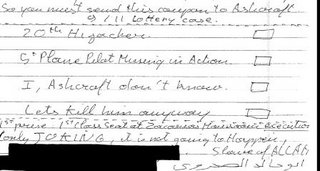 So you must send this coupon to Ashcroft
9/11 Lottery case.
20th Hijacker.
5th Plane Pilot Missing in Action
I, Ashcroft don't know.
Lets kill him anyway
1st prize 1st Class Seat at Zacarias Moussaoui execution
only JOKING, it is not going to Happen,
Slave of ALLAH